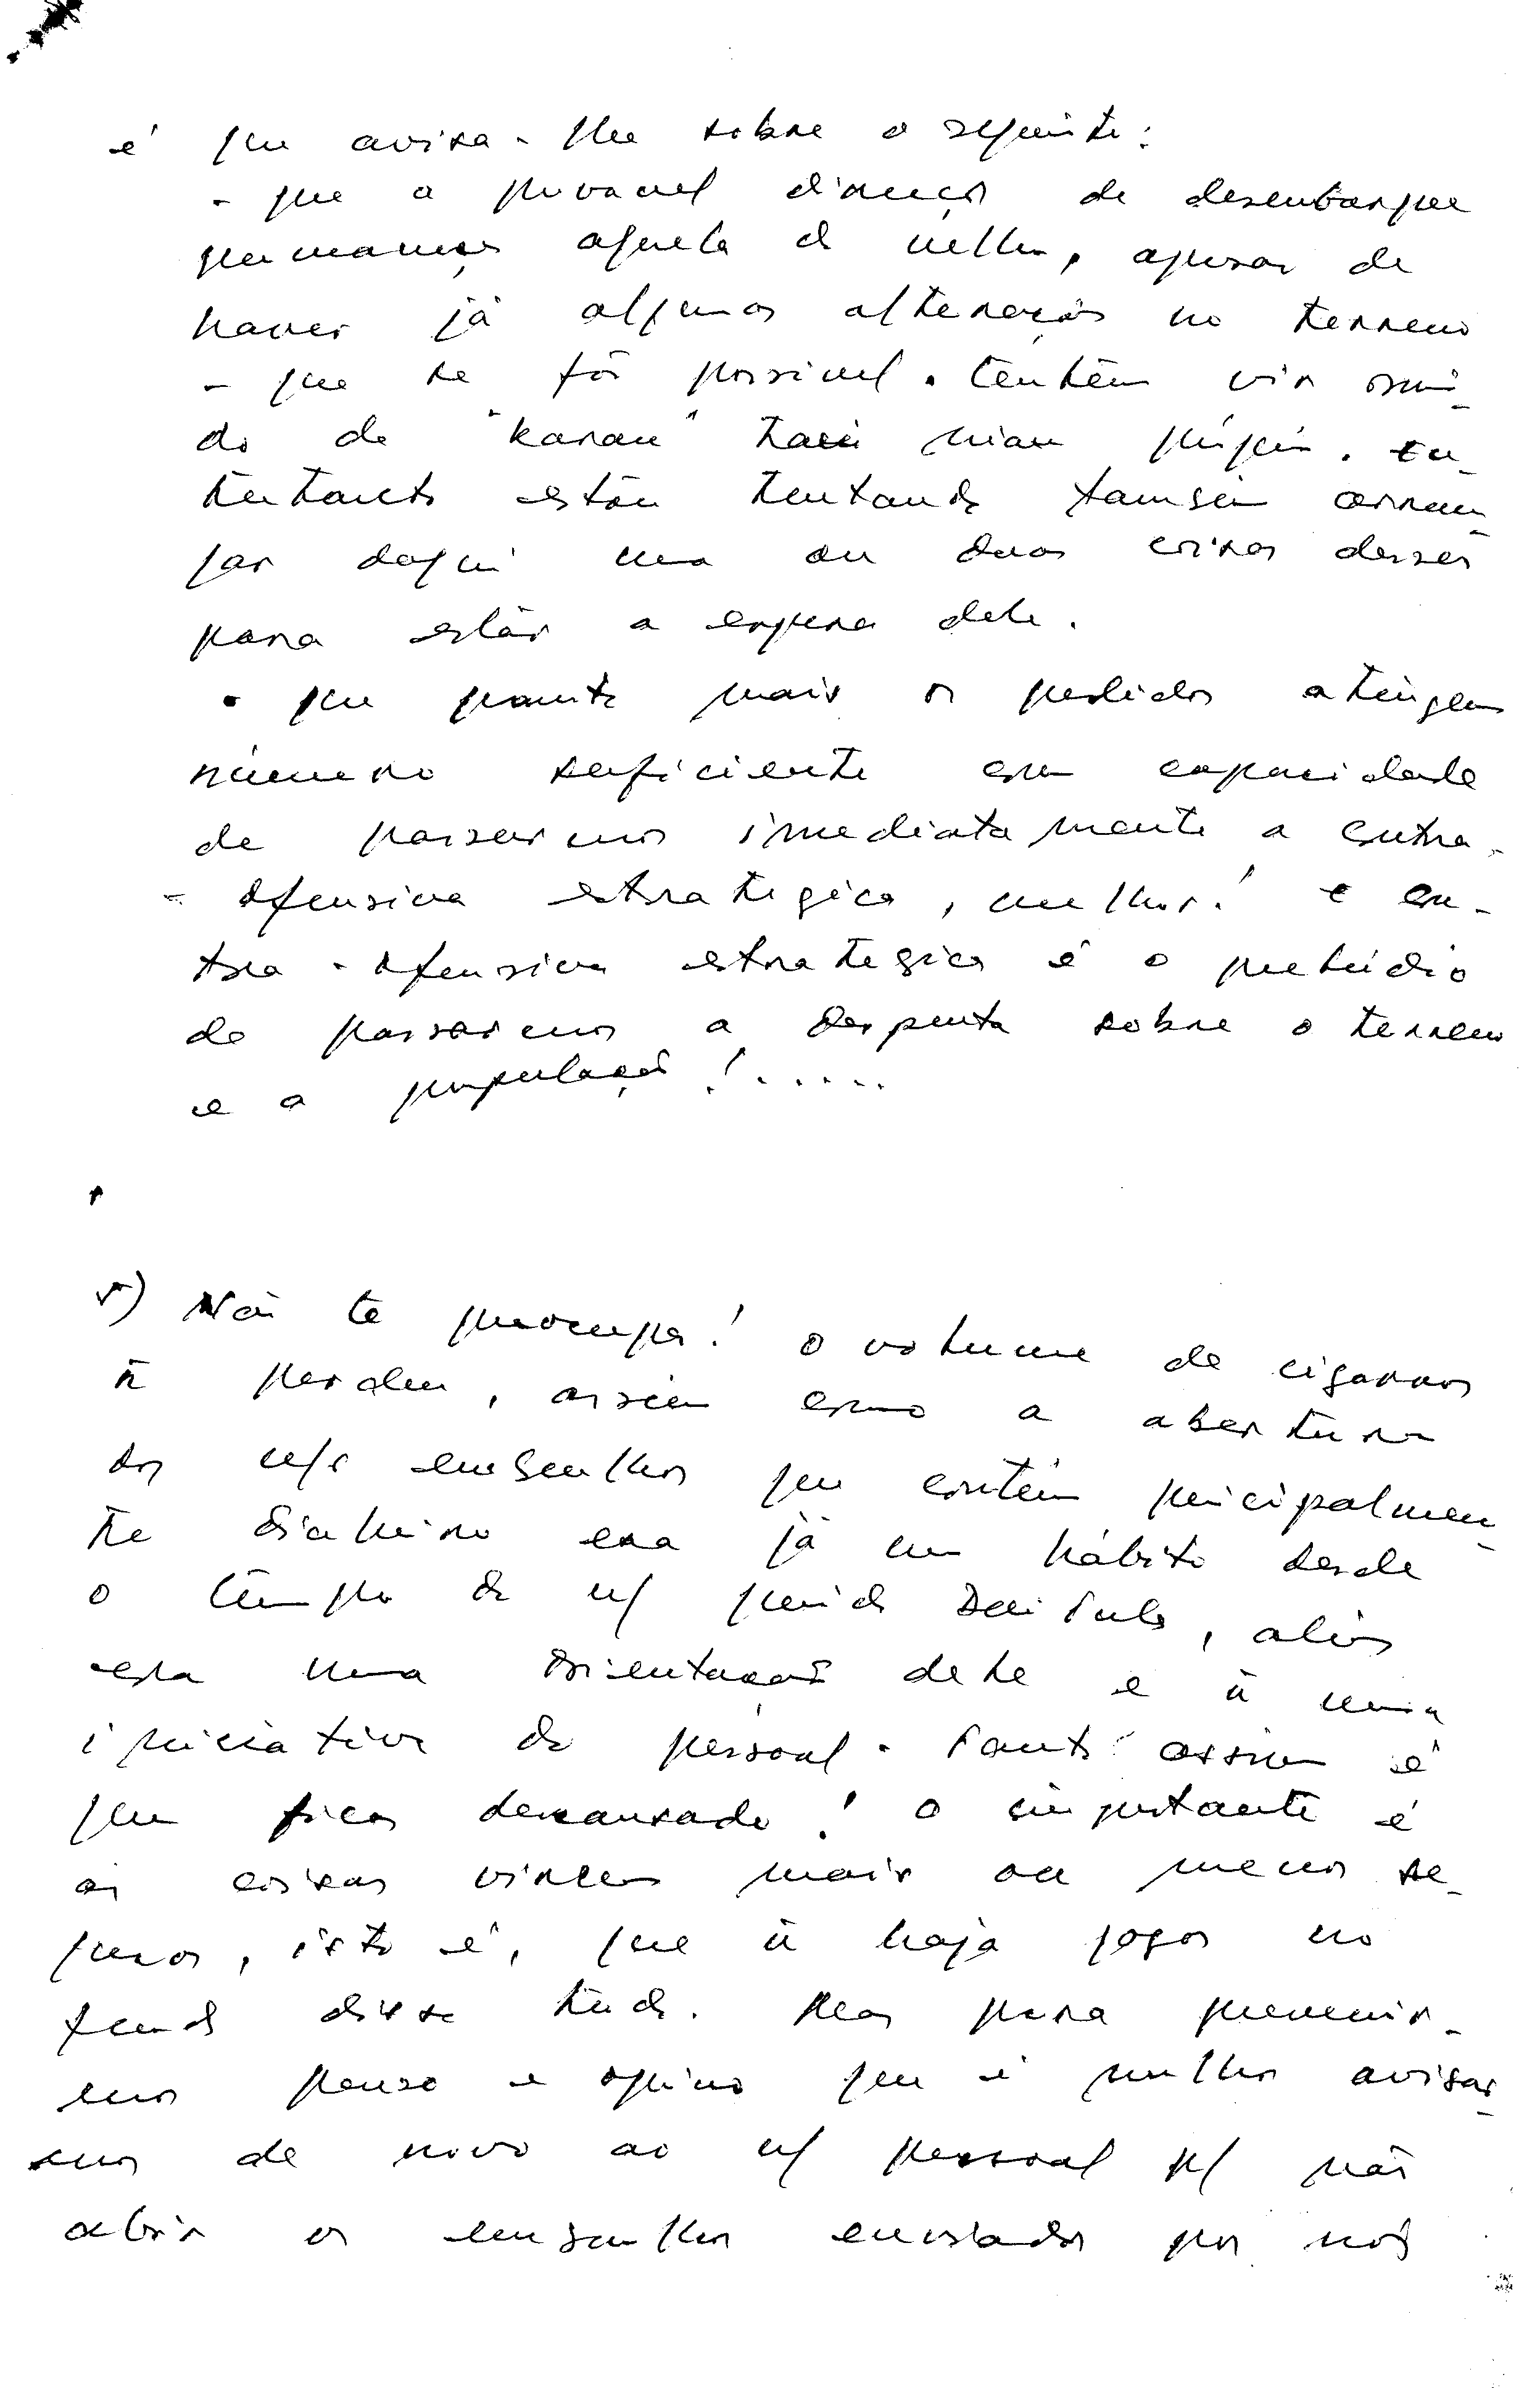 é que avisa-lhe sobre o seguinte:
- que a provavel de desembarque
permaneça aquela de velha, apesar de
haver já algumas alterações no terreno
- que se fôr possivel. tentem vir muni-
do de "karau" . en-
tretanto estão tentando também arran-
jar daqui uma ou duas coisas desses
para estár a espera dele.
- que quanto mais os pedidos atingem
número suficiente em capacidade
de passarmos imediatamente a contra-
- ofensiva estrategica, melhor! e con-
tra-ofensiva estrategica é o prelúdio
de passarmos a desputa sobre o terreno
e a população!.....
5) Não te preocupa! o volume de cigarros
ñ perdeu, assim como a abertura
dos n/s embrulhos que contêm principalmen-
te dinheiro era já um hábito desde
o tempo do n/ querido , aliás
era uma orientação dele e ñ uma
iniciativa do pessoal. Tanto assim é
que ficas descansado! o importante é
as coisas virem mais ou menos se-
guras, isto é, que ñ haja jogos no
fundo disso tudo. Mas para prevenir-
mos penso e opino que é melhor avisar-
mos de novo ao n/ pessoal p/ não
abrir os embrulhos enviados por nós